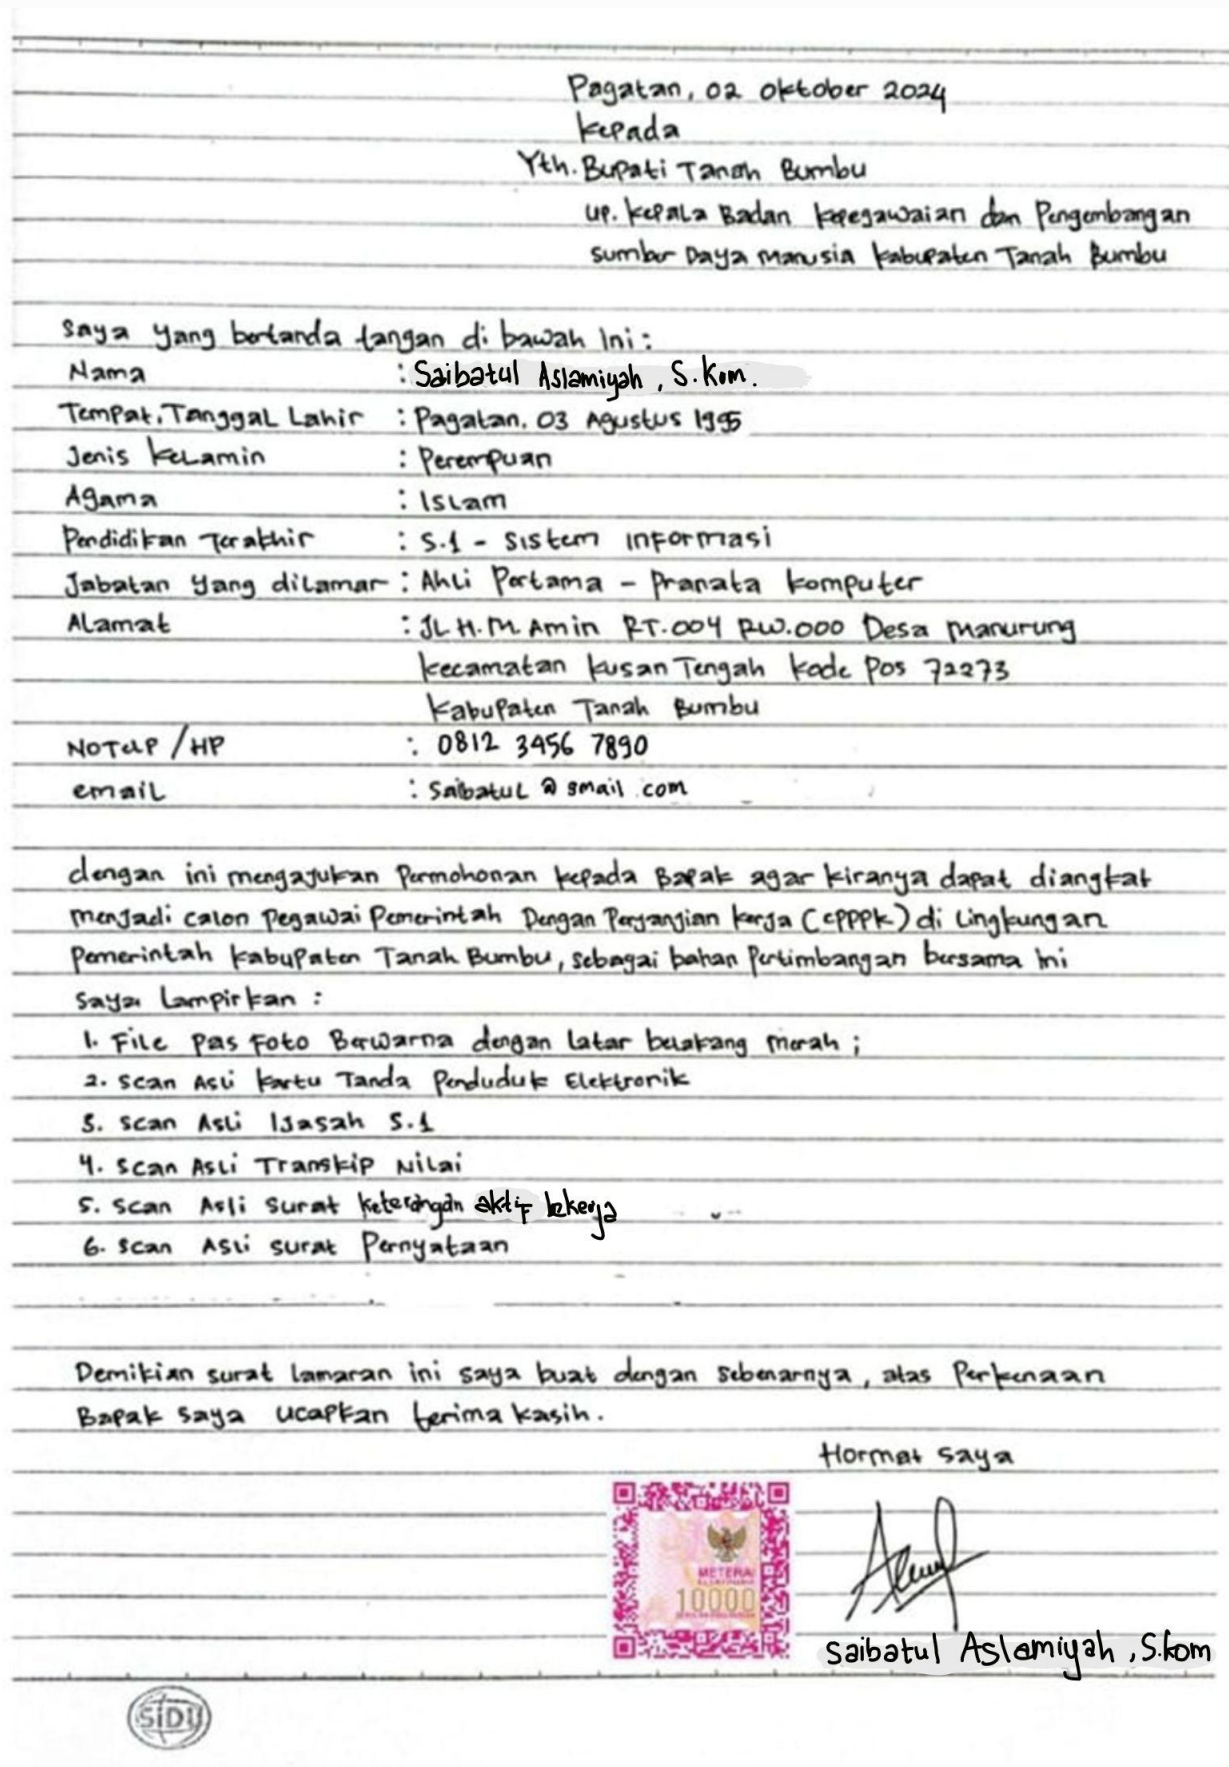 Pagatan, 02 Oktober 2024
Kepada
Yth. Bupati Tanah Bumbu
up. Kepala Badan Kepegawaian dan Pengembangan
Sumber Daya Manusia Kabupaten Tanah Bumbu
Saya yang bertanda tangan di bawah ini :
Nama : Saibatul Aslamiyah, S.Kom.
Tempat, Tanggal Lahir : Pagatan, 03 Agustus 1995
Jenis Kelamin : Perempuan
Agama : Islam
Pendidikan Terakhir : S.1 - Sistem Informasi
Jabatan yang dilamar : Ahli Pertama - Pranata Komputer
Alamat : JL. H.M. Amin RT.004 RW.000 Desa Manurung
Kecamatan Kusan Tengah Kode Pos 72273
Kabupaten Tanah Bumbu
No Telp / HP : 0812 3456 7890
email : Saibatul@gmail.com
dengan ini mengajukan Permohonan kepada Bapak agar kiranya dapat diangkat
menjadi calon Pegawai Pemerintah Dengan Perjanjian Kerja (CPPPK) di Lingkungan
Pemerintah Kabupaten Tanah Bumbu, sebagai bahan Pertimbangan bersama ini
saya Lampirkan :
1. File Pas Foto Berwarna dengan latar belakang merah ;
2. Scan Asli Kartu Tanda Penduduk Elektronik
3. Scan Asli Ijasah S.1
4. Scan Asli Transkip Nilai
5. Scan Asli Surat Keterangan aktif bekerja
6. Scan Asli Surat Pernyataan
Demikian surat lamaran ini saya buat dengan sebenarnya, atas Perkenaan
Bapak saya ucapkan terima kasih.
Hormat saya
METERAI
10000
Saibatul Aslamiyah, S.Kom
SiDU